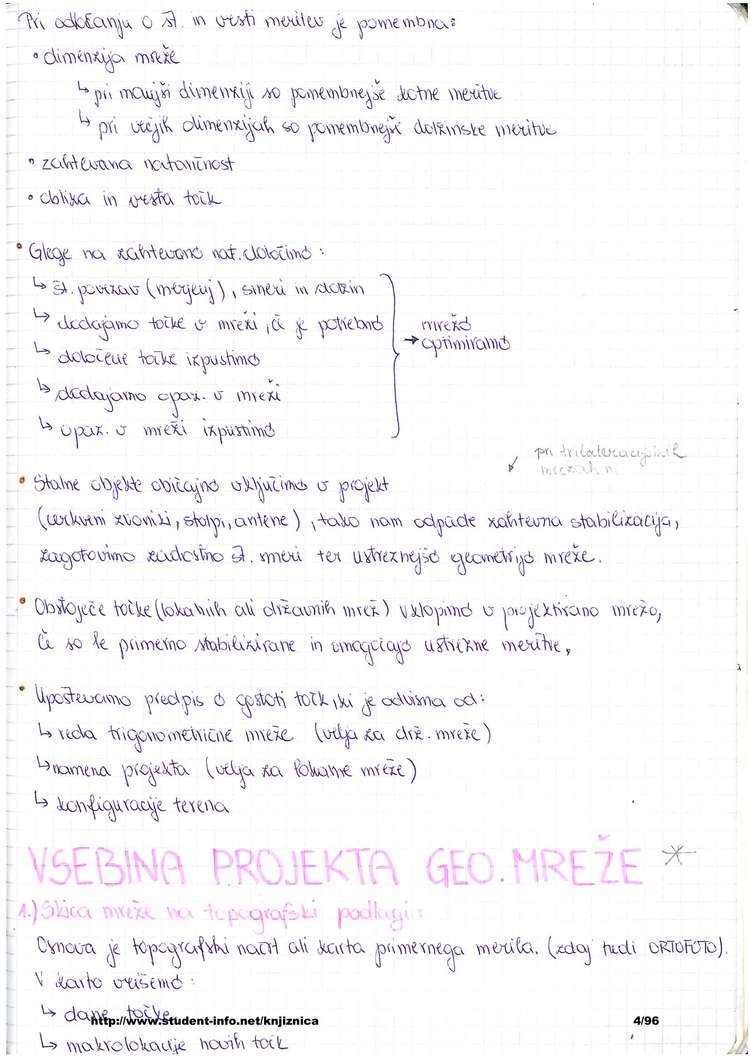 Pri odločanju o št. in vrsti meritev je pomembna:
• dimenzija mreže
↳ pri manjši dimenziji so pomembnejše kotne meritve
↳ pri večjih dimenzijah so pomembnejše dolžinske meritve
• zahtevana natančnost
• oblika in vrsta točk
• Glege na zahtevano nat. določimo:
↳ št. povezav (merjenj), smeri in dolžin
↳ dodajamo točke v mreži, če je potrebno
↳ določene točke izpustimo
↳ dodajamo opaz. v mreži
↳ opaz. v mreži izpustimo
→ mrežo
optimiramo
pri trilateracijskih
mrežah
• Stalne objekte običajno vključimo v projekt
(cerkveni zvoniki, stolpi, antene), tako nam odpade zahtevna stabilizacija,
zagotovimo zadostno št. smeri ter ustreznejšo geometrijo mreže.
• Obstoječe točke (lokalnih ali državnih mrež) vklopimo v projektirano mrežo,
če so le primerno stabilizirane in omogočajo ustrezne meritve,
• Upoštevamo predpis o gostoti točk, ki je odvisna od:
↳ reda trigonometrične mreže (velja za drž. mreže)
↳ namena projekta (velja za lokalne mreže)
↳ konfiguracije terena
VSEBINA PROJEKTA GEO. MREŽE *
1.) Skica mreže na topografski podlagi:
Osnova je topografski načrt ali karta primernega merila. (zdaj tudi ORTOFOTO).
V karto vrišemo:
↳ dane točke
http://www.student-info.net/knjiznica
4/96
↳ makrolokacije novih točk